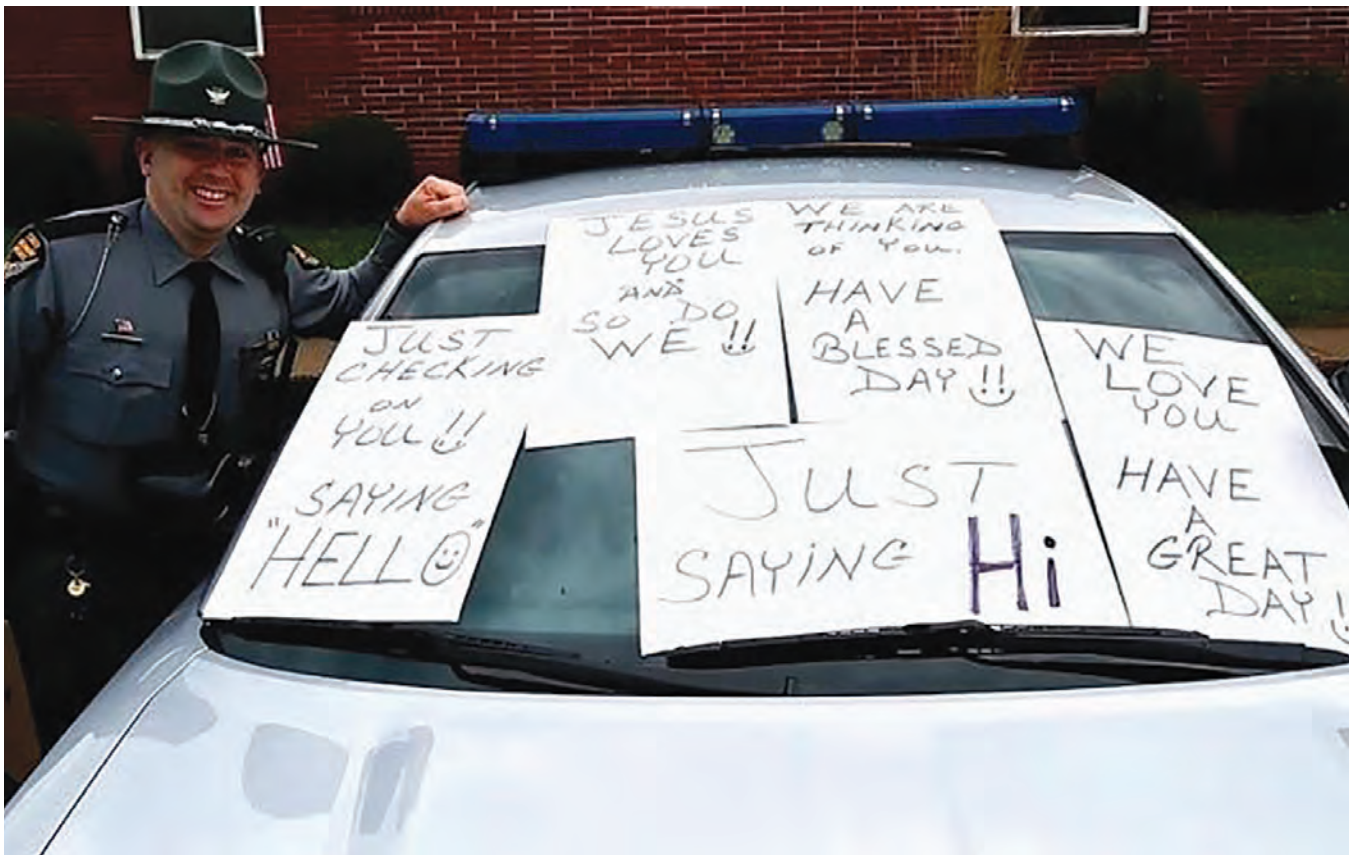 JUST
CHECKING
ON
YOU!!
SAYING
"HELLO"
JESUS
LOVES
YOU
AND
SO DO
WE!!
WE ARE
THINKING
OF YOU.
HAVE
A
BLESSED
DAY!!
JUST
SAYING Hi
WE
LOVE
YOU
HAVE
A
GREAT
DAY!